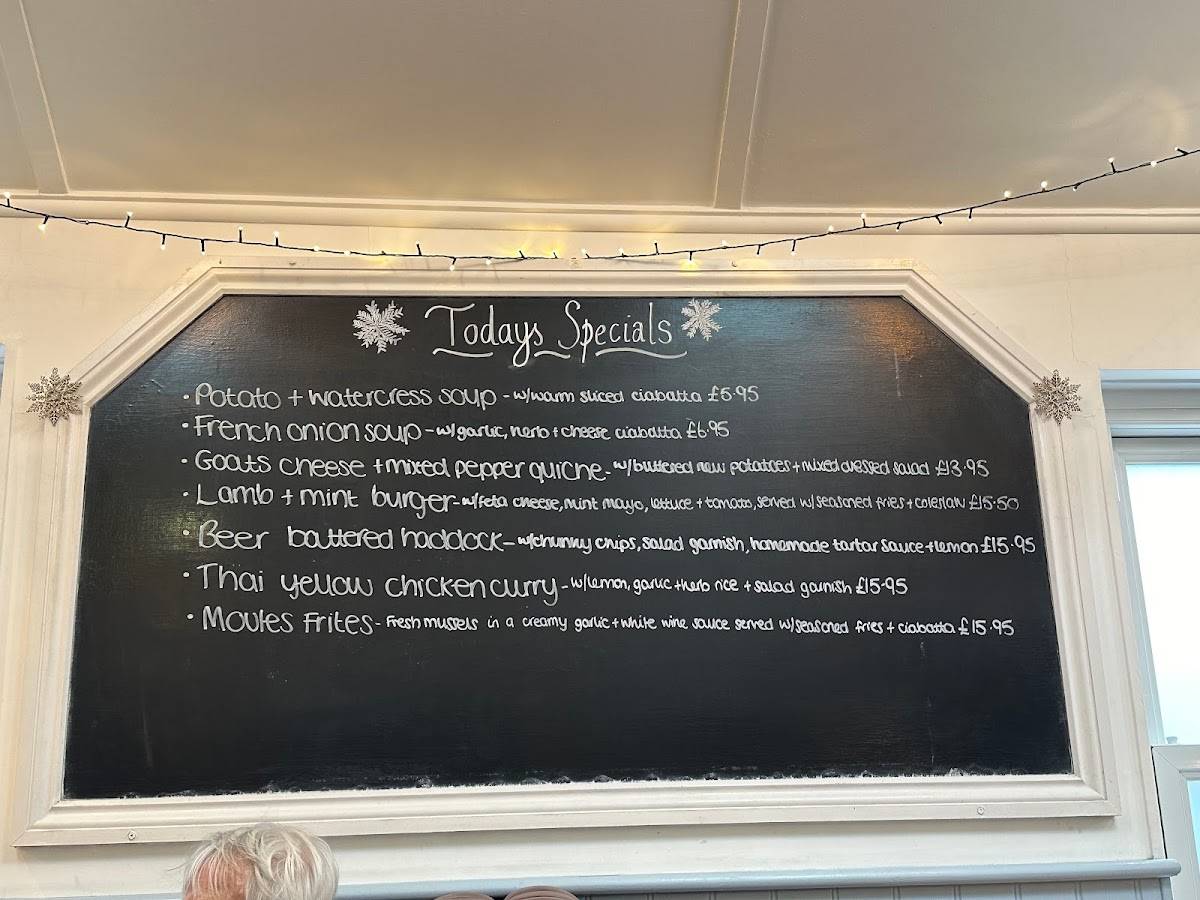 Todays Specials
• Potato + watercress soup - w/warm sliced ciabatta £6.95
• French onion soup - w/garlic, herb + cheese ciabatta £6.95
• Goats cheese + mixed pepper quiche - w/buttered new potatoes + mixed dressed salad £13.95
• Lamb + mint burger - w/feta cheese, mint mayo, lettuce + tomato, served w/seasoned fries + coleslaw £15.50
• Beer battered haddock - w/chunky chips, salad garnish, homemade tartar sauce + lemon £15.95
• Thai yellow chicken curry - w/lemon, garlic + herb rice + salad garnish £15.95
• Moules Frites - Fresh mussels in a creamy garlic + white wine sauce served w/seasoned fries + ciabatta £15.95